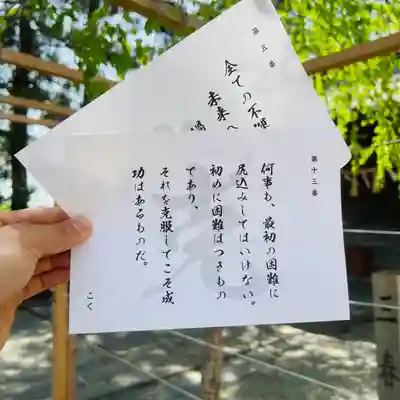 第十三番
何事も、最初の困難に
尻込みしてはいけない。
初めに困難はつきもの
であり、
それを克服してこそ成
功はあるものだ。
こく
第五番
全ての不
未来へ
三春